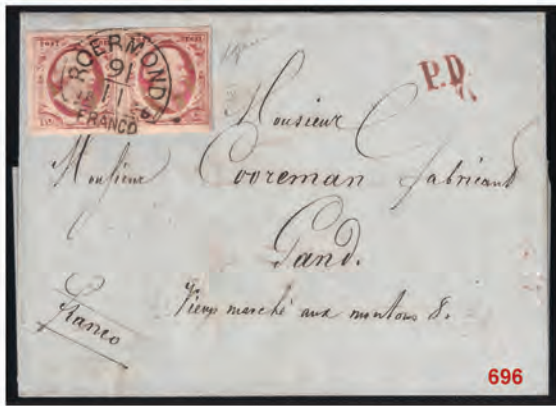 ROERMOND
16
11
FRANCO
P.D.
Monsieur
Monsieur Cooreman fabricant
Gand.
Vieux marché aux moutons 8.
Franco
696